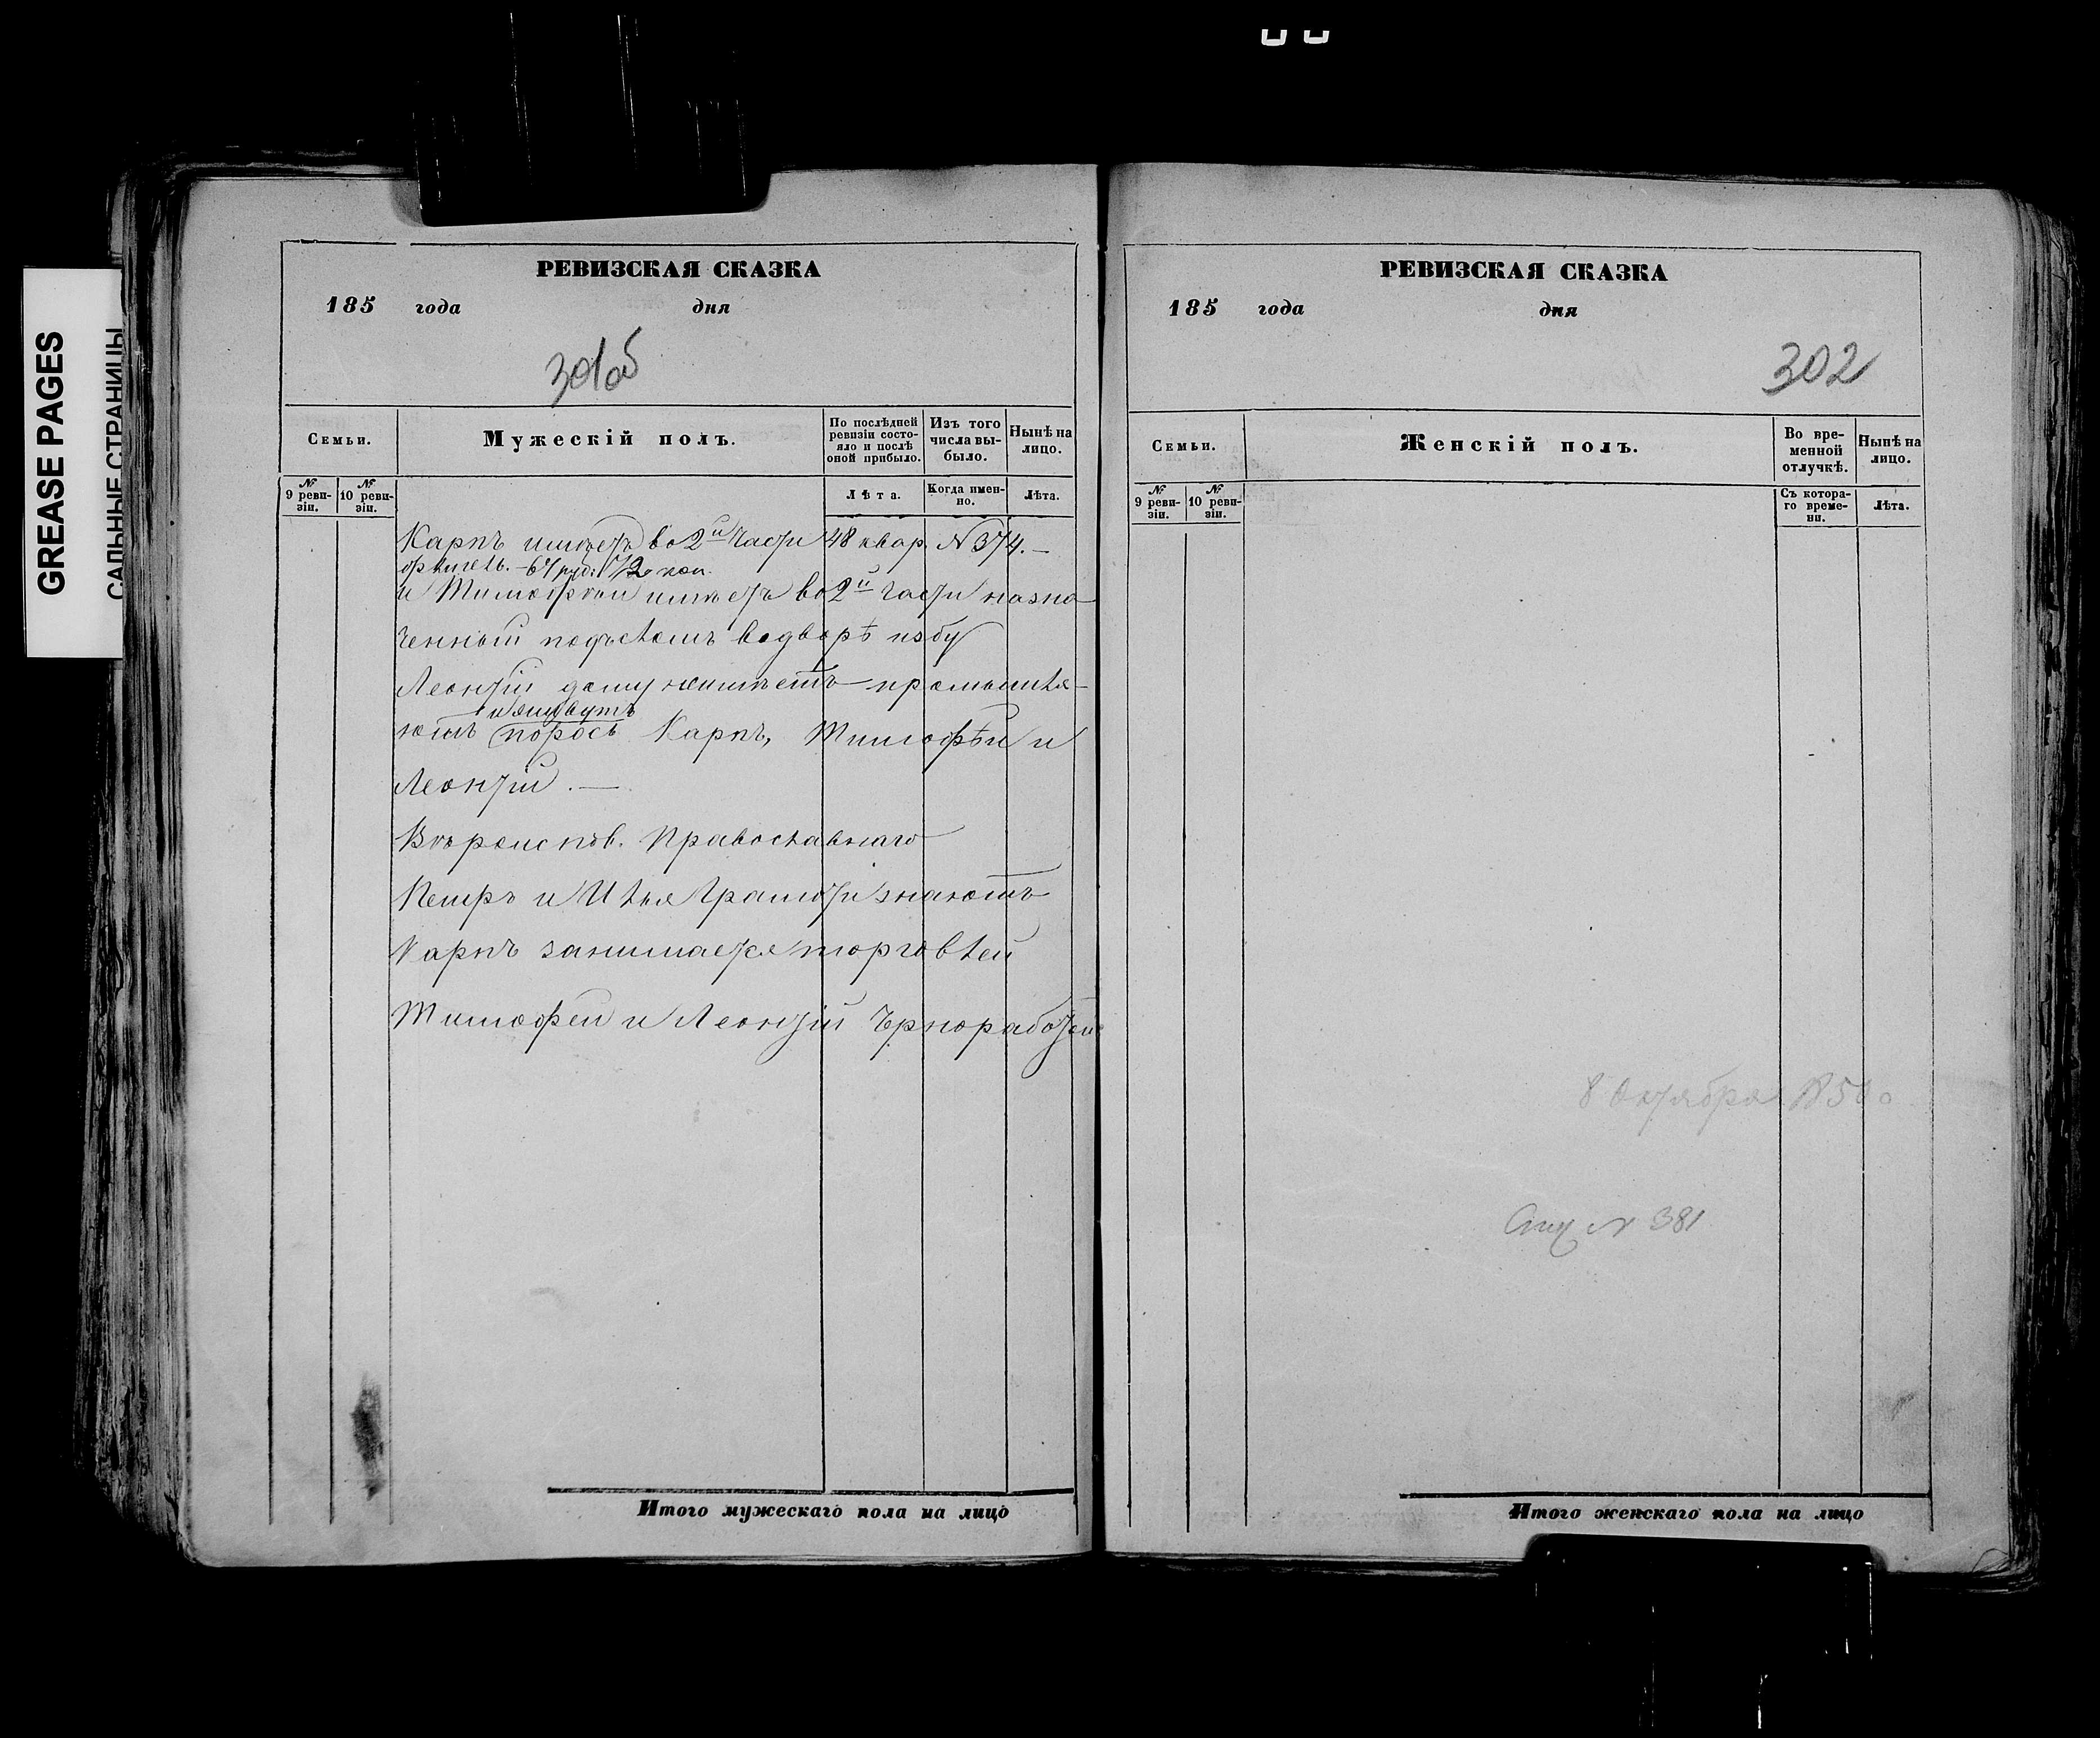 GREASE PAGES
САЛЬНЫЕ СТРАНИЦЫ
РЕВИЗСКАЯ СКАЗКА
185 года дня
301об
Семьи.
Мужескій полъ.
По послѣдней ревизіи состояло и послѣ оной прибыло.
Изъ того числа выбыло.
Нынѣ на лицо.
№ 9 ревизіи.
№ 10 ревизіи.
Лѣта.
Когда именно.
Лѣта.
Карпъ имѣетъ во 2й части 48 квар. № 374. —
руб. коп.
и Тимофѣй имѣетъ во 2й части назна
ченный подъ домъ во дворѣ избу
Леонтій дому не имѣетъ промышля-
и живутъ
ютъ порось Карпъ, Тимофѣй и
Леонтій. —
Вѣроиспов. Православнаго
Петръ и Илья Грамоти знаютъ
Карпъ занимается торговлей
Тимофей и Леонтій Чрнорабочей
Итого мужескаго пола на лицо
РЕВИЗСКАЯ СКАЗКА
185 года дня
302
Семьи.
Женскій полъ.
Во временной отлучкѣ.
Нынѣ на лицо.
№ 9 ревизіи.
№ 10 ревизіи.
Съ котораго времени.
Лѣта.
8 Октября 1850
№ 381
Итого женскаго пола на лицо